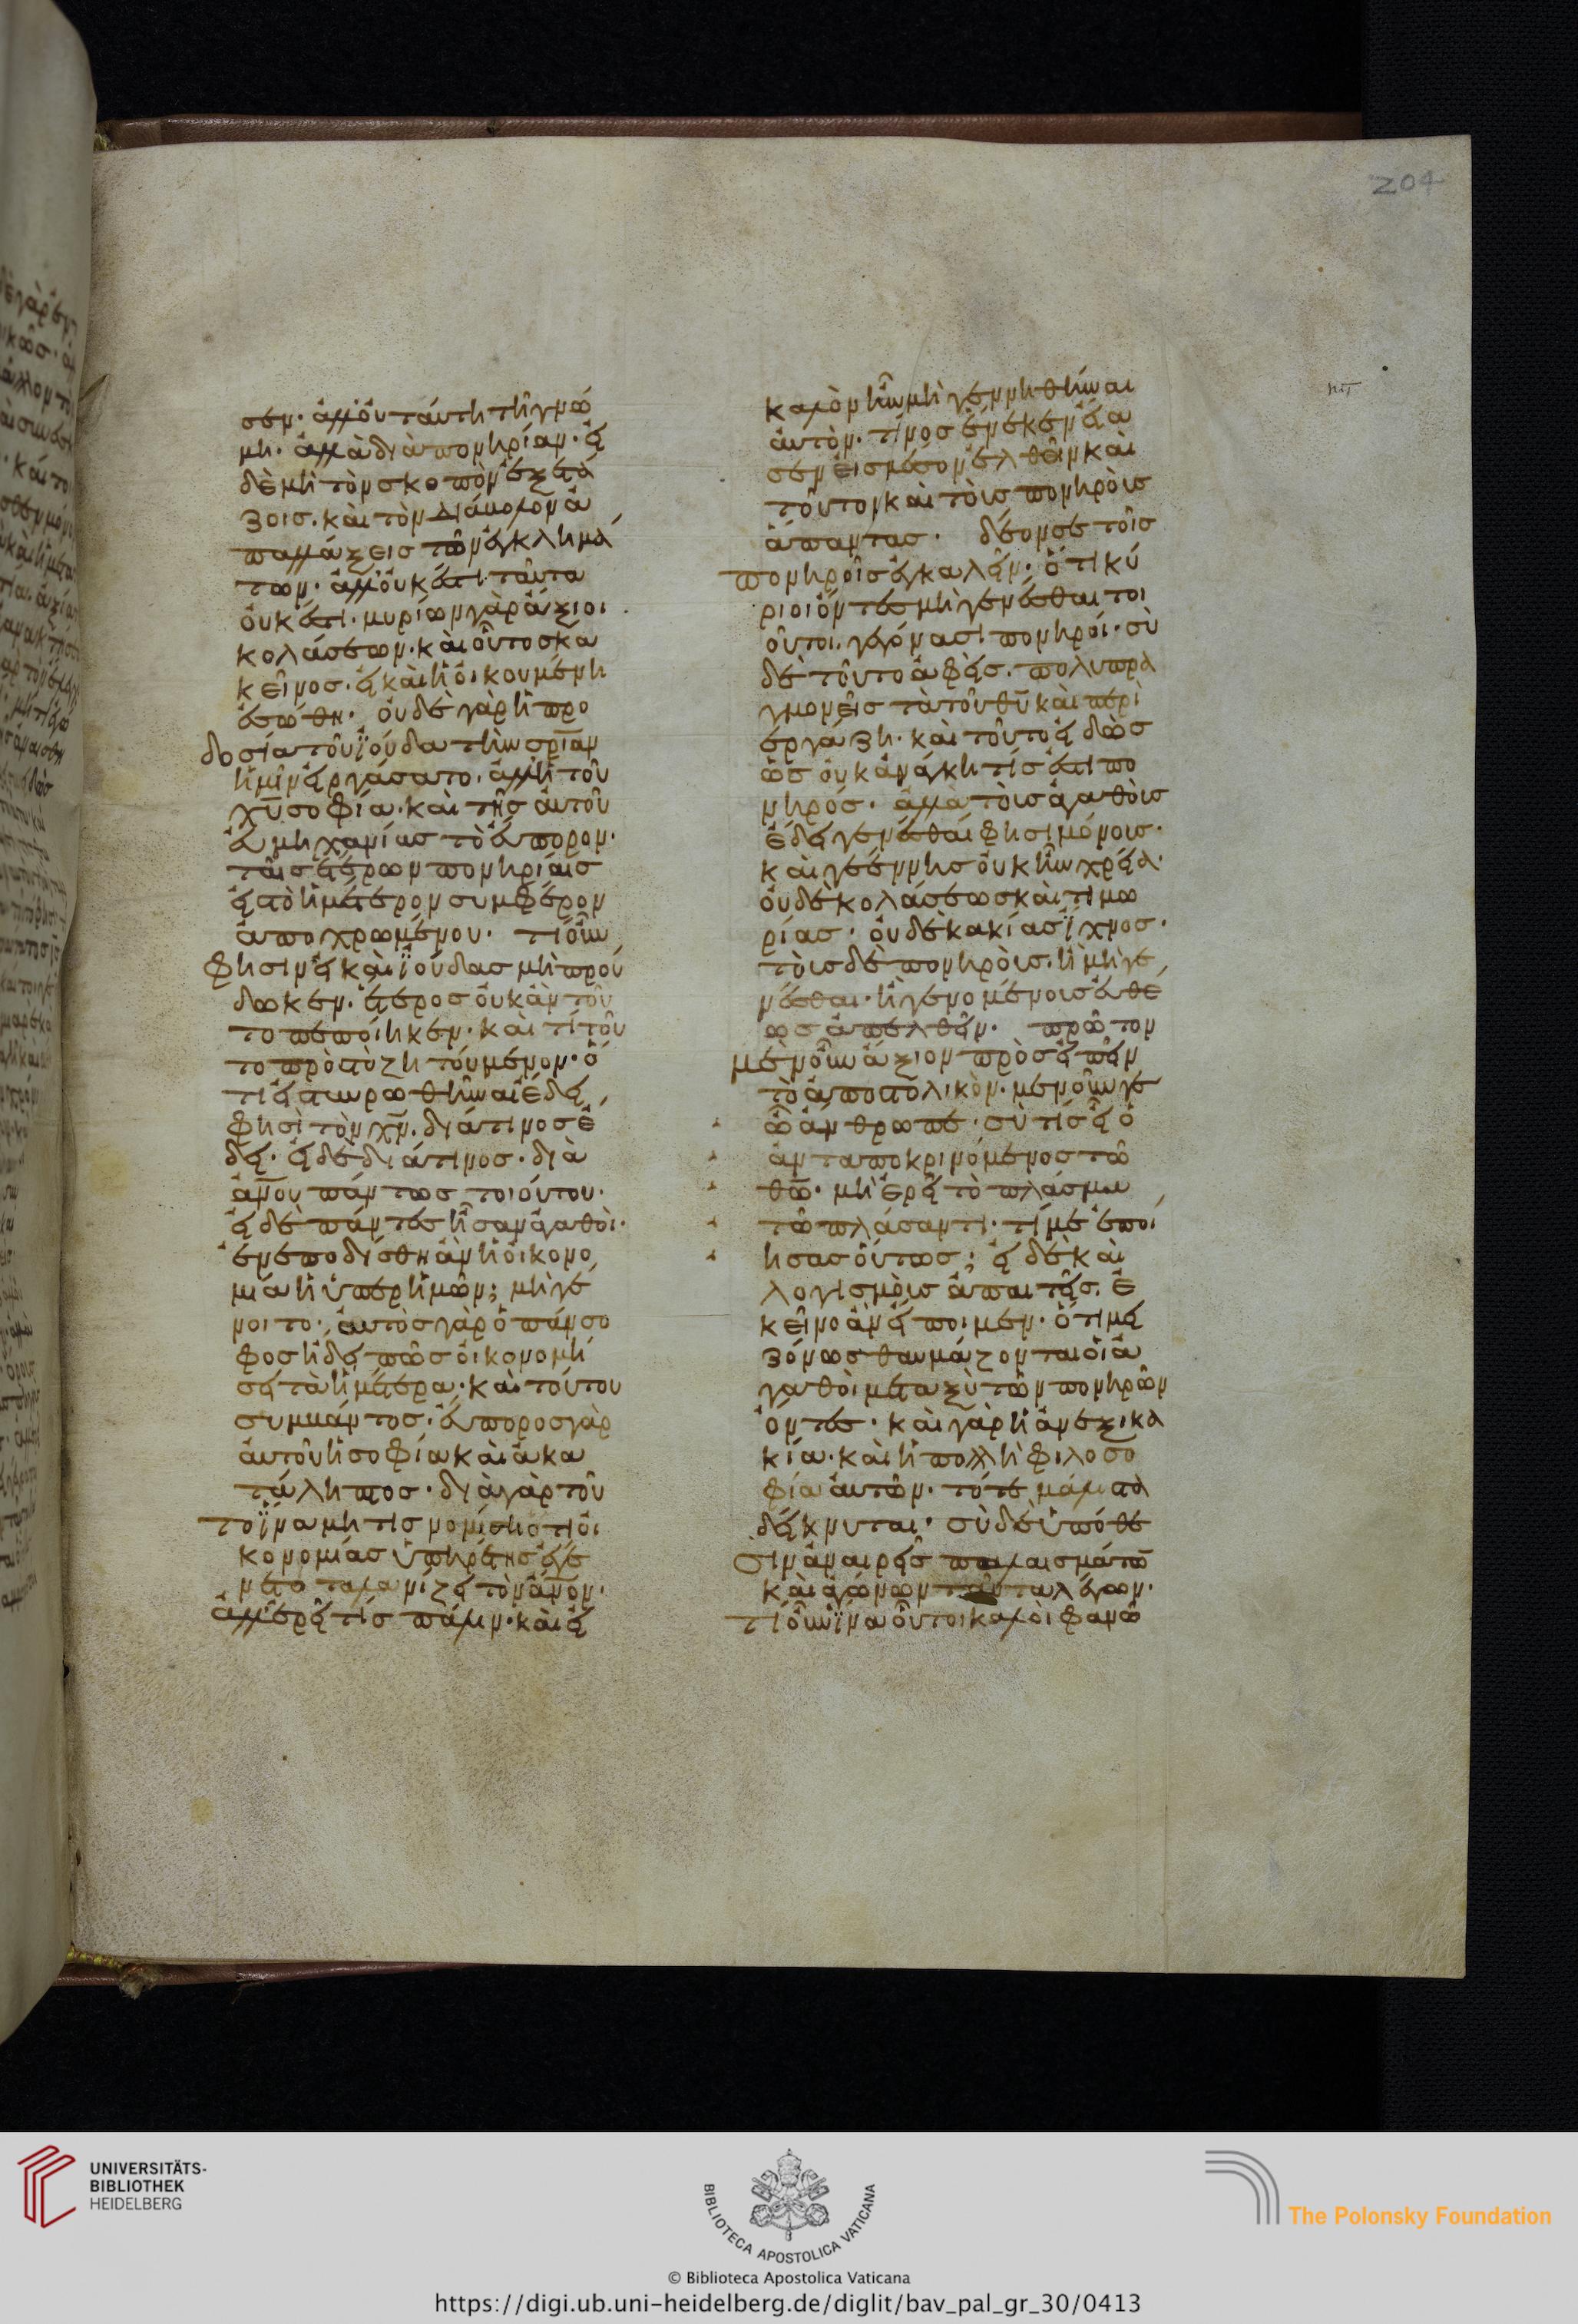 204
σεν· ἀλλ' οὐ ταύτη τῆ γνώ
μη· ἀλλὰ διὰ πονηρίαν· εἰ
δὲ μὴ τὸν σκοπὸν ἐξετά
ζοις. καὶ τὸν διάβολον ἀ
παλλάξεις τῶν ἐγκλημά
των· ἀλλ' οὐκ ἔστι ταῦτα
οὐκ ἔστι· μυρίων γὰρ ἄξιοι
κολάσεων· καὶ οὗτος κἀ
κεῖνος. εἰ καὶ ἡ οἰκουμένη
ἐσώθη· οὐδὲ γὰρ ἡ προ
δοσία τοῦ ϊούδα τὴν σρίαν
ἡμῖν εἰργάσατο. ἀλλ' ἡ τοῦ
χυ σοφία· καὶ τῆς αὐτοῦ
εὐμηχανίας τὸ εὔπορον·
ταῖς ἑτέρων πονηρίαις
εἰς τὸ ἡμέτερον συμφέρον
ἀποχρωμένου· τί οὖν
φησιν εἰ καὶ ϊούδας μὴ πρού
δωκεν· ἕτερος οὐκ ἂν τοῦ
το πεποίηκεν· καὶ τί τοῦ
το πρὸς τὸ ζητούμενον· ὅ
τι εἰ σταυρωθῆναι ἔδει
φησὶ τὸν χν. διά τινος ἔ
δει· εἰ δὲ διά τινος· διὰ
ἀνου πάντως τοιούτου·
εἰ δὲ πάντες ἦσαν ἀγαθοὶ·
ἐνεποδίσθη ἂν ἡ οἰκονο
μία ἡ ὑπὲρ ἡμῶν; μὴ γέ
νοιτο· αὐτὸς γὰρ ὁ πάνσο
φος ἤδει πῶς οἰκονομή
σει τὰ ἡμέτερα· καὶ τούτου
συμβάντος. εὔπορος γὰρ
αὐτοῦ ἡ σοφία καὶ ἀκα
τάληπτος· διὰ γὰρ τοῦ
το ϊνα μή τις νομίση ὅτι οἰ
κονομίας ὑπηρέτης ἐγέ
νετο ταλανίζει τὸν ἄνον·
ἀλλ' ἐρεῖ τίς πάλιν· καὶ εἰ
καλὸν ἦν μὴ γεννηθῆναι
αὐτὸν· τίνος ἕνεκεν εἴα
σεν εἰς μέσον ἐλθεῖν καὶ
τοῦτον καὶ τοὺς πονηροὺς
ἅπαντας· δέον σε τοῖς
πονηροῖς ἐγκαλεῖν· ὅτι κύ
ριοι ὄντες μὴ γενέσθαι τοι
οῦτοι. γεγόνασι πονηροί· σὺ
δὲ τοῦτο ἀφεὶς. πολυπρα
γμονεῖς τὰ τοῦ θυ καὶ περι
εργάζη· καὶ τοῦτο εἰδὼς
ὡς οὐκ ἀνάγκη τίς ἐστι πο
νηρός· ἀλλὰ τοὺς ἀγαθοὺς
ἔδει γενέσθαί φησι μόνους·
καὶ γεέννης οὐκ ἦν χρεία·
οὐδὲ κολάσεως καὶ τιμω
ρίας· οὐδὲ κακίας ϊχνος·
τοὺς δὲ πονηροὺς. ἢ μὴ γε
νέσθαι· ἢ γενομένους εὐθέ
ως ἀπελθεῖν· πρῶτον
μὲν οὖν ἄξιον πρὸς σὲ εἰπεῖν
τὸ ἀποστολικὸν· μενοῦνγε
ὦ ἄνθρωπε· σὺ τίς εἶ ὁ
ἀνταποκρινόμενος τῶ
θῶ· μὴ ἐρεῖ τὸ πλάσμα
τῶ πλάσαντι· τί με ἐποί
ησας οὕτως; εἰ δὲ καὶ
λογισμοὺς ἀπαιτεῖς. ἐ
κεῖνο ἂν εἴποιμεν· ὅτι μει
ζόνως θαυμάζονται οἱ ἀ
γαθοὶ μεταξὺ τῶν πονηρῶν
ὄντες· καὶ γὰρ ἡ ἀνεξικα
κία· καὶ ἡ πολλὴ φιλοσο
φία αὐτῶν· τότε μάλιστα
δείκνυται· σὺ δὲ ὑπόθε
σιν ἀναιρεῖς παλαισμάτω
καὶ ἀγώνων ταῦτα λέγων·
τί οὖν ϊνα οὗτοι καλοὶ φανῶ
UNIVERSITÄTS-
BIBLIOTHEK
HEIDELBERG
BIBLIOTECA APOSTOLICA VATICANA
The Polonsky Foundation
© Biblioteca Apostolica Vaticana
https://digi.ub.uni-heidelberg.de/diglit/bav_pal_gr_30/0413